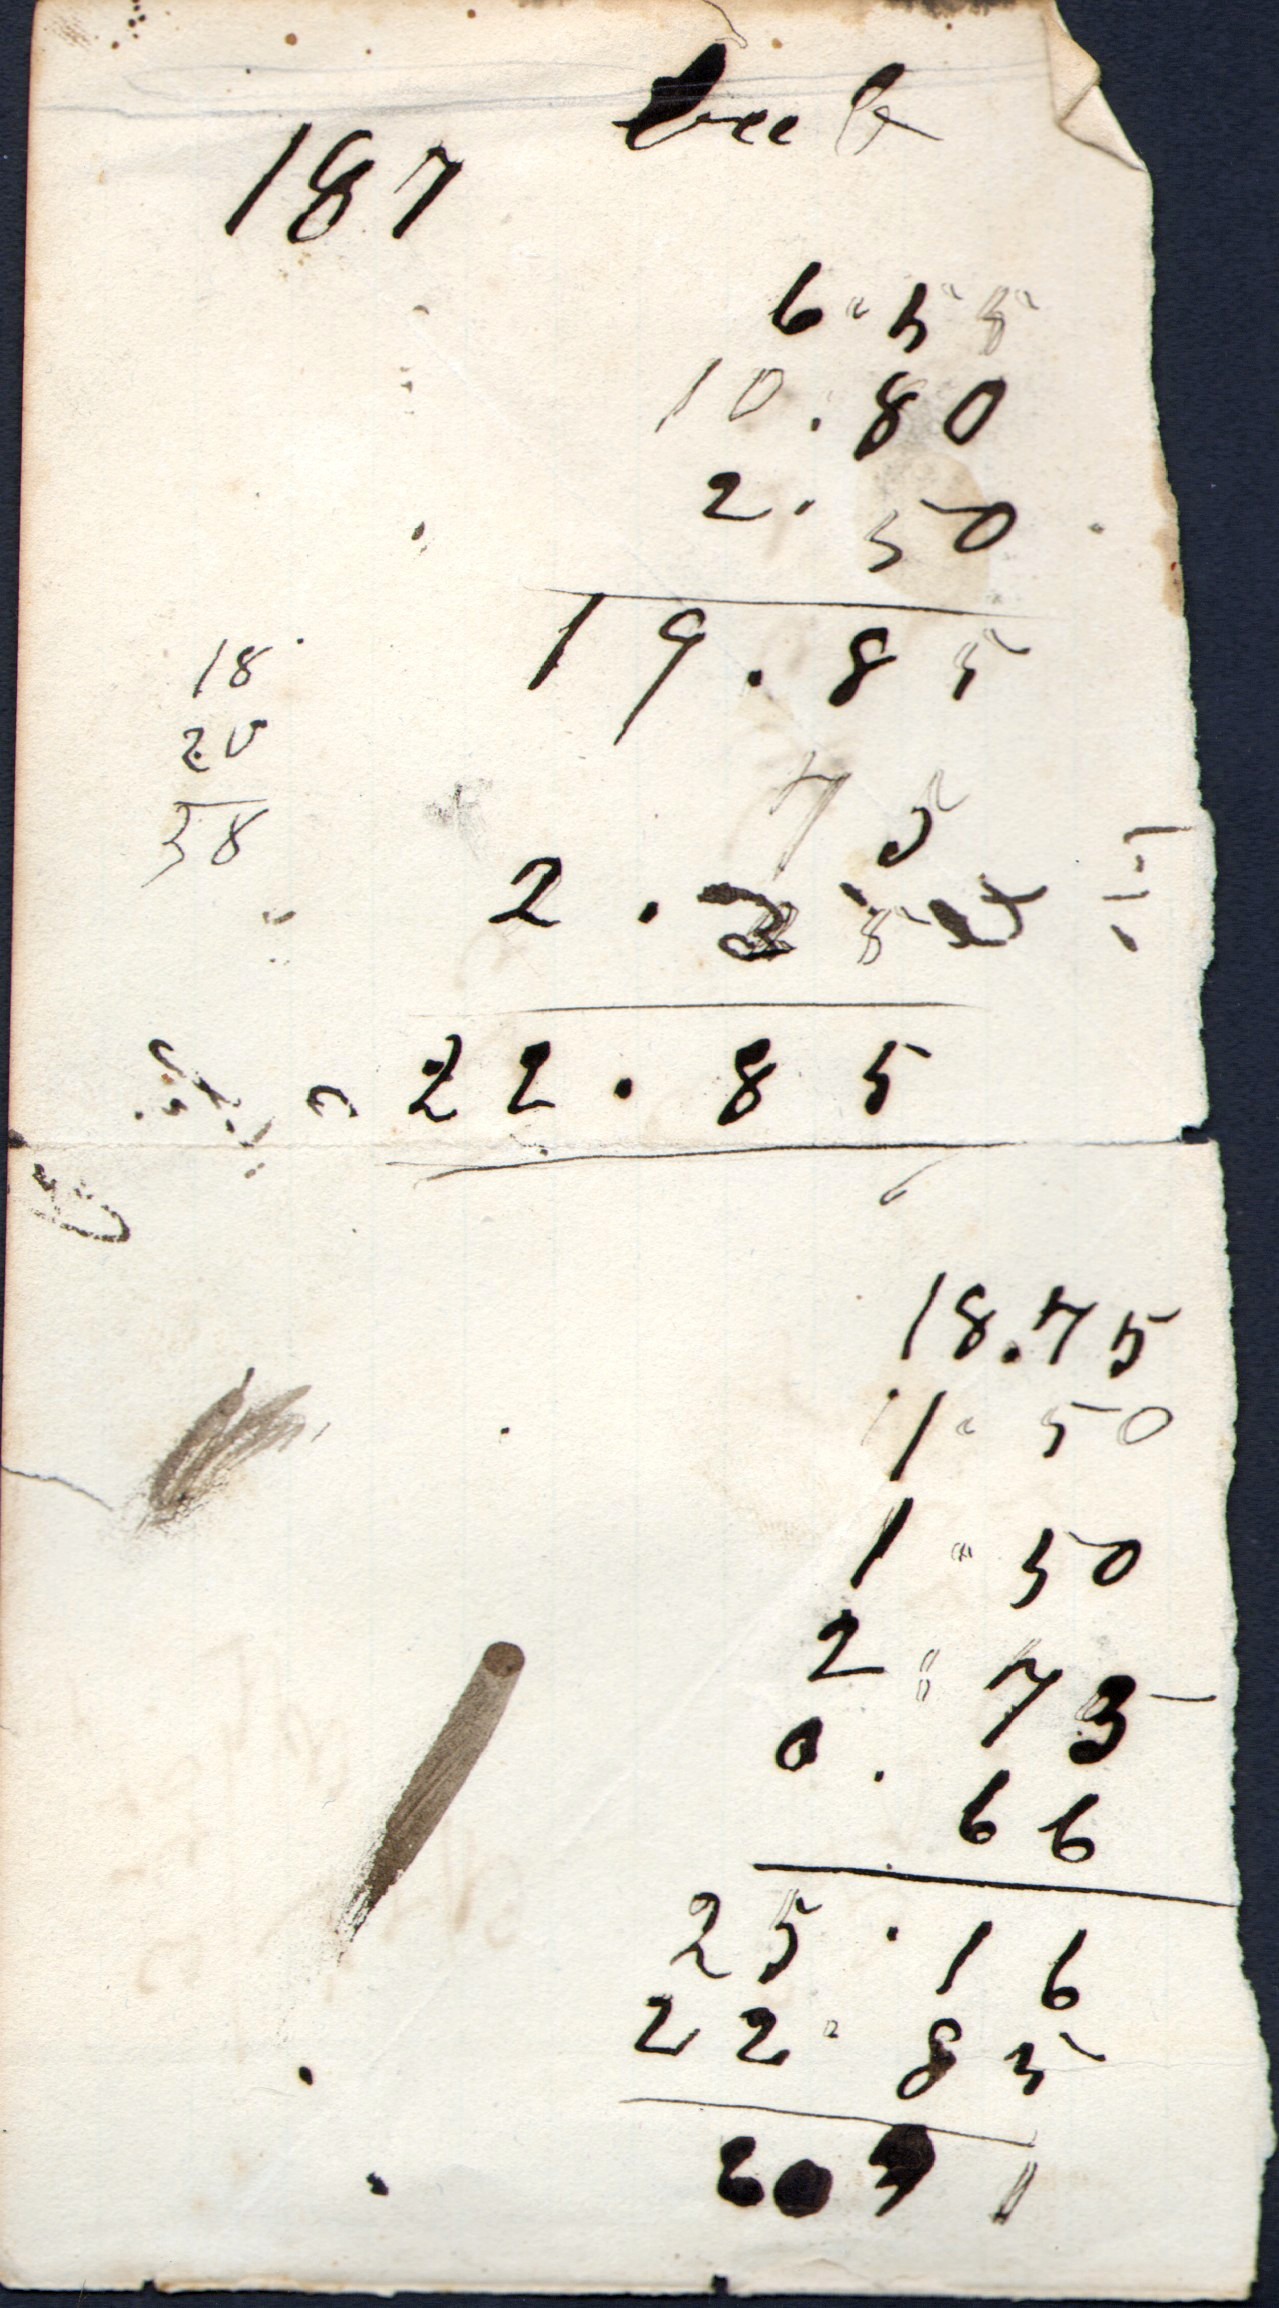 187
6.55
10.80
2.50
19.85
18
20
38
75
2.
22.85
18.75
1.50
1.50
2.75
0.66
25.16
22.85